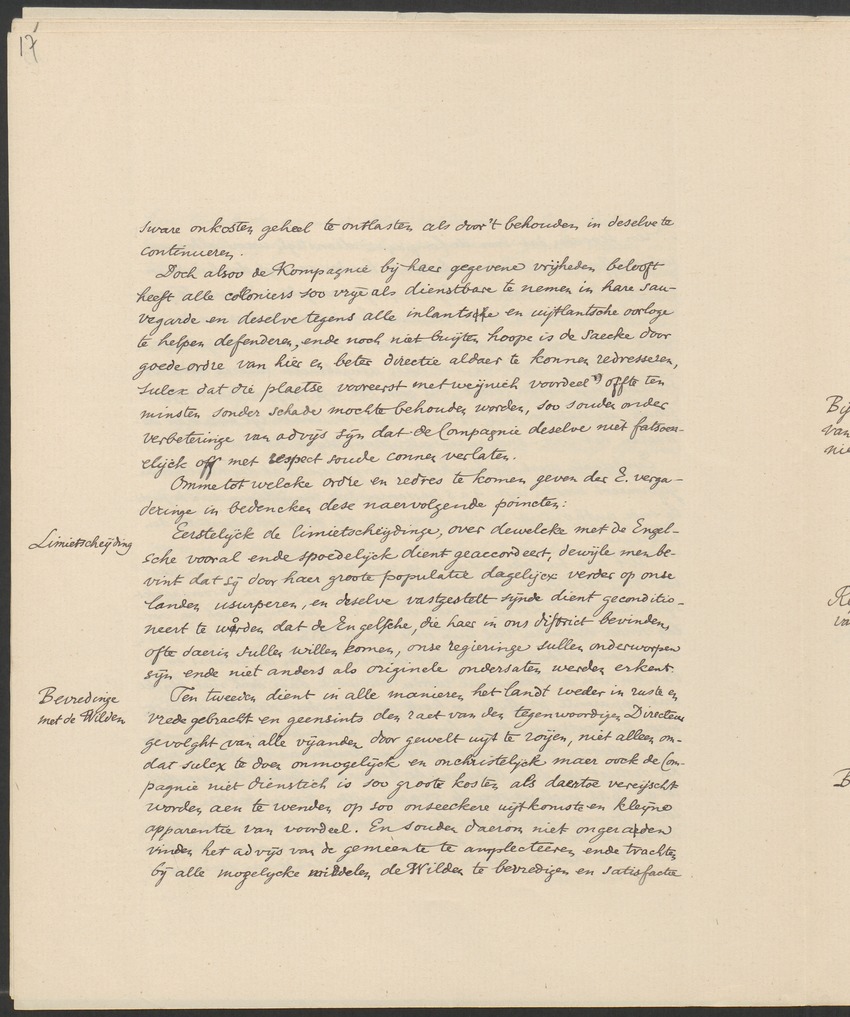 17
sware onkosten geheel te ontlasten als door't behouden in deselve te
continueren.
Doch alsoo de Kompagnie bij haer gegevene vrijheden belooft
heeft alle coloniers soo vrije als dienstbare te nemen in hare sau-
vegarde en deselve tegens alle inlantsche en uijtlantsche oorloge
te helpen defenderen, ende noch niet buijten hoope is de saecke door
goede ordre van hier en beter directie aldaer te konnen redresseren,
sulcx dat die plaetse vooreerst met weijnich voordeel offte ten
minsten sonder schade mochte behouden worden, soo souden onder
verbeteringe van advijs sijn dat de Compagnie deselve niet fatsoen-
elijck off met respect soude connen verlaten.
Omme tot welcke ordre en redres te komen geven der E. verga-
deringe in bedencken dese naervolgende poincten:
Limietscheijding
Eerstelijck de limietscheijdinge, over dewelcke met de Engel-
sche vooral ende spoedelijck dient geaccordeert, dewijle men be-
vint dat sij door haer groote populatie dagelijcx verder op onse
landen usurperen, en deselve vastgestelt sijnde dient geconditio-
neert te worden dat de Engelsche, die haer in ons district bevinden,
ofte daerin sullen willen komen, onse regieringe sullen onderworpen
sijn ende niet anders als originele ondersaten werden erkent.
Bevredinge
met de Wilden
Ten tweeden dient in alle manieren het landt weder in ruste en
vrede gebracht en geensints den raet van den tegenwoordigen Directeur
gevolght van alle vijanden door gewelt uijt te roijen, niet alleen om-
dat sulcx te doen onmogelijck en onchristelijck maer oock de Com-
pagnie niet dienstich is soo groote kosten als daertoe vereijscht
worden aen te wenden op soo onseeckere uijtkomste en kleijne
apparentie van voordeel. En souden daerom niet ongeraden
vinden het advijs van de gemeente te amplecteeren ende trachten
bij alle mogelijcke middelen de Wilden te bevredigen en satisfactie